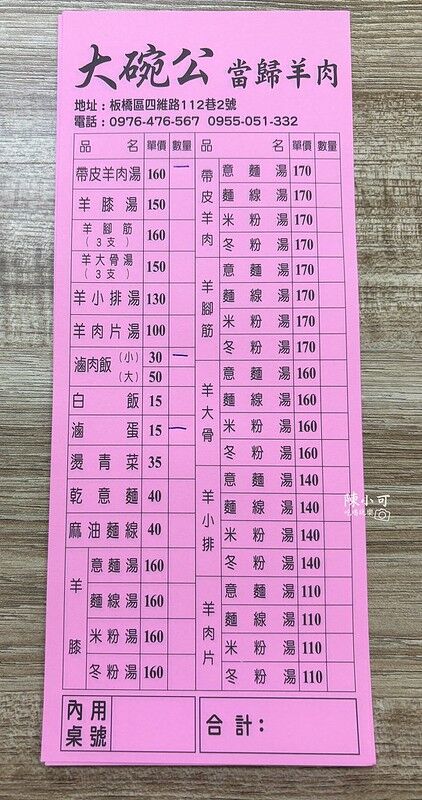 大碗公 當歸羊肉
地址：板橋區四維路112巷2號
電話：0976-476-567 0955-051-332
品名 單價 數量
帶皮羊肉湯 160 一
羊膝湯 150
羊腳筋（3支） 160
羊大骨湯（3支） 150
羊小排湯 130
羊肉片湯 100
滷肉飯（小） 30 一
（大） 50
白飯 15
滷蛋 15 一
燙青菜 35
乾意麵 40
麻油麵線 40
羊膝
意麵湯 160
麵線湯 160
米粉湯 160
冬粉湯 160
品名 單價 數量
帶皮羊肉
意麵湯 170
麵線湯 170
米粉湯 170
冬粉湯 170
羊腳筋
意麵湯 170
麵線湯 170
米粉湯 170
冬粉湯 170
羊大骨
意麵湯 160
麵線湯 160
米粉湯 160
冬粉湯 160
羊小排
意麵湯 140
麵線湯 140
米粉湯 140
冬粉湯 140
羊肉片
意麵湯 110
麵線湯 110
米粉湯 110
冬粉湯 110
內用桌號
合計：
陳小可
吃喝玩樂